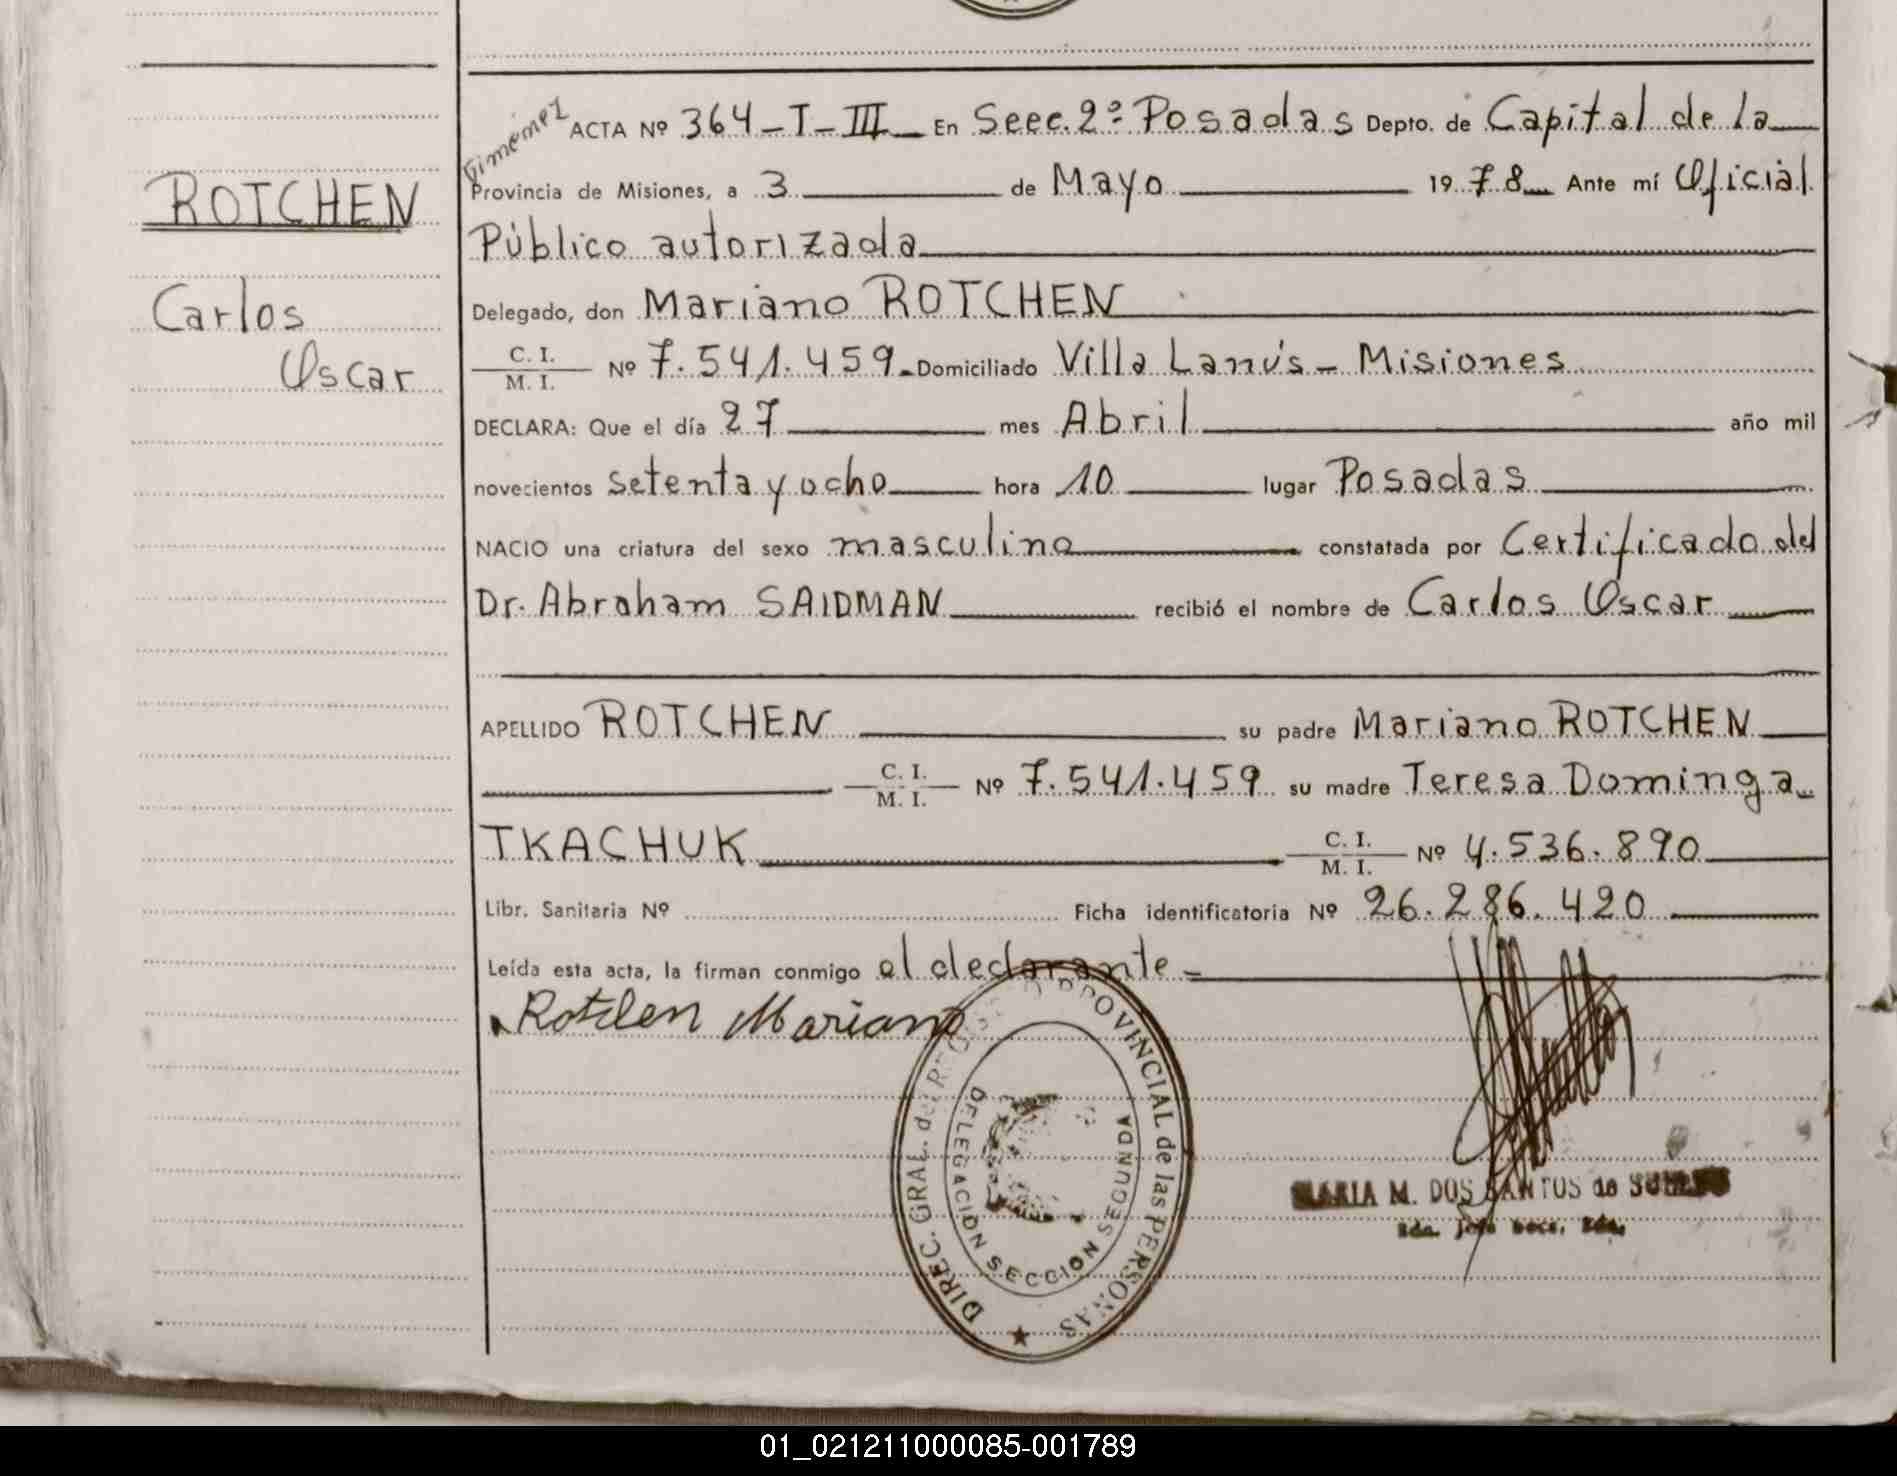 ROTCHEN
Carlos
Oscar
Gimenez
ACTA Nº 364-I-III En Secc. 2ª Posadas Depto. de Capital de la
Provincia de Misiones, a 3 de Mayo 1978 Ante mí Oficial
Público autorizada
Delegado, don Mariano ROTCHEN
C. I.
M. I.
Nº 7.541.459 Domiciliado Villa Lanús - Misiones
DECLARA: Que el día 27 mes Abril año mil
novecientos setenta y ocho hora 10 lugar Posadas
NACIO una criatura del sexo masculino constatada por Certificado del
Dr. Abraham SAIDMAN recibió el nombre de Carlos Oscar
APELLIDO ROTCHEN su padre Mariano ROTCHEN
C. I.
M. I.
Nº 7.541.459 su madre Teresa Dominga
TKACHUK
C. I.
M. I.
Nº 4.536.890
Libr. Sanitaria Nº Ficha identificatoria Nº 26.286.420
Leída esta acta, la firman conmigo el declarante
Rotchen Mariano
DIREC. GRAL. del REGISTRO PROVINCIAL de las PERSONAS
DELEGACION SECCION SEGUNDA
MARIA M. DOS SANTOS de
01_021211000085-001789